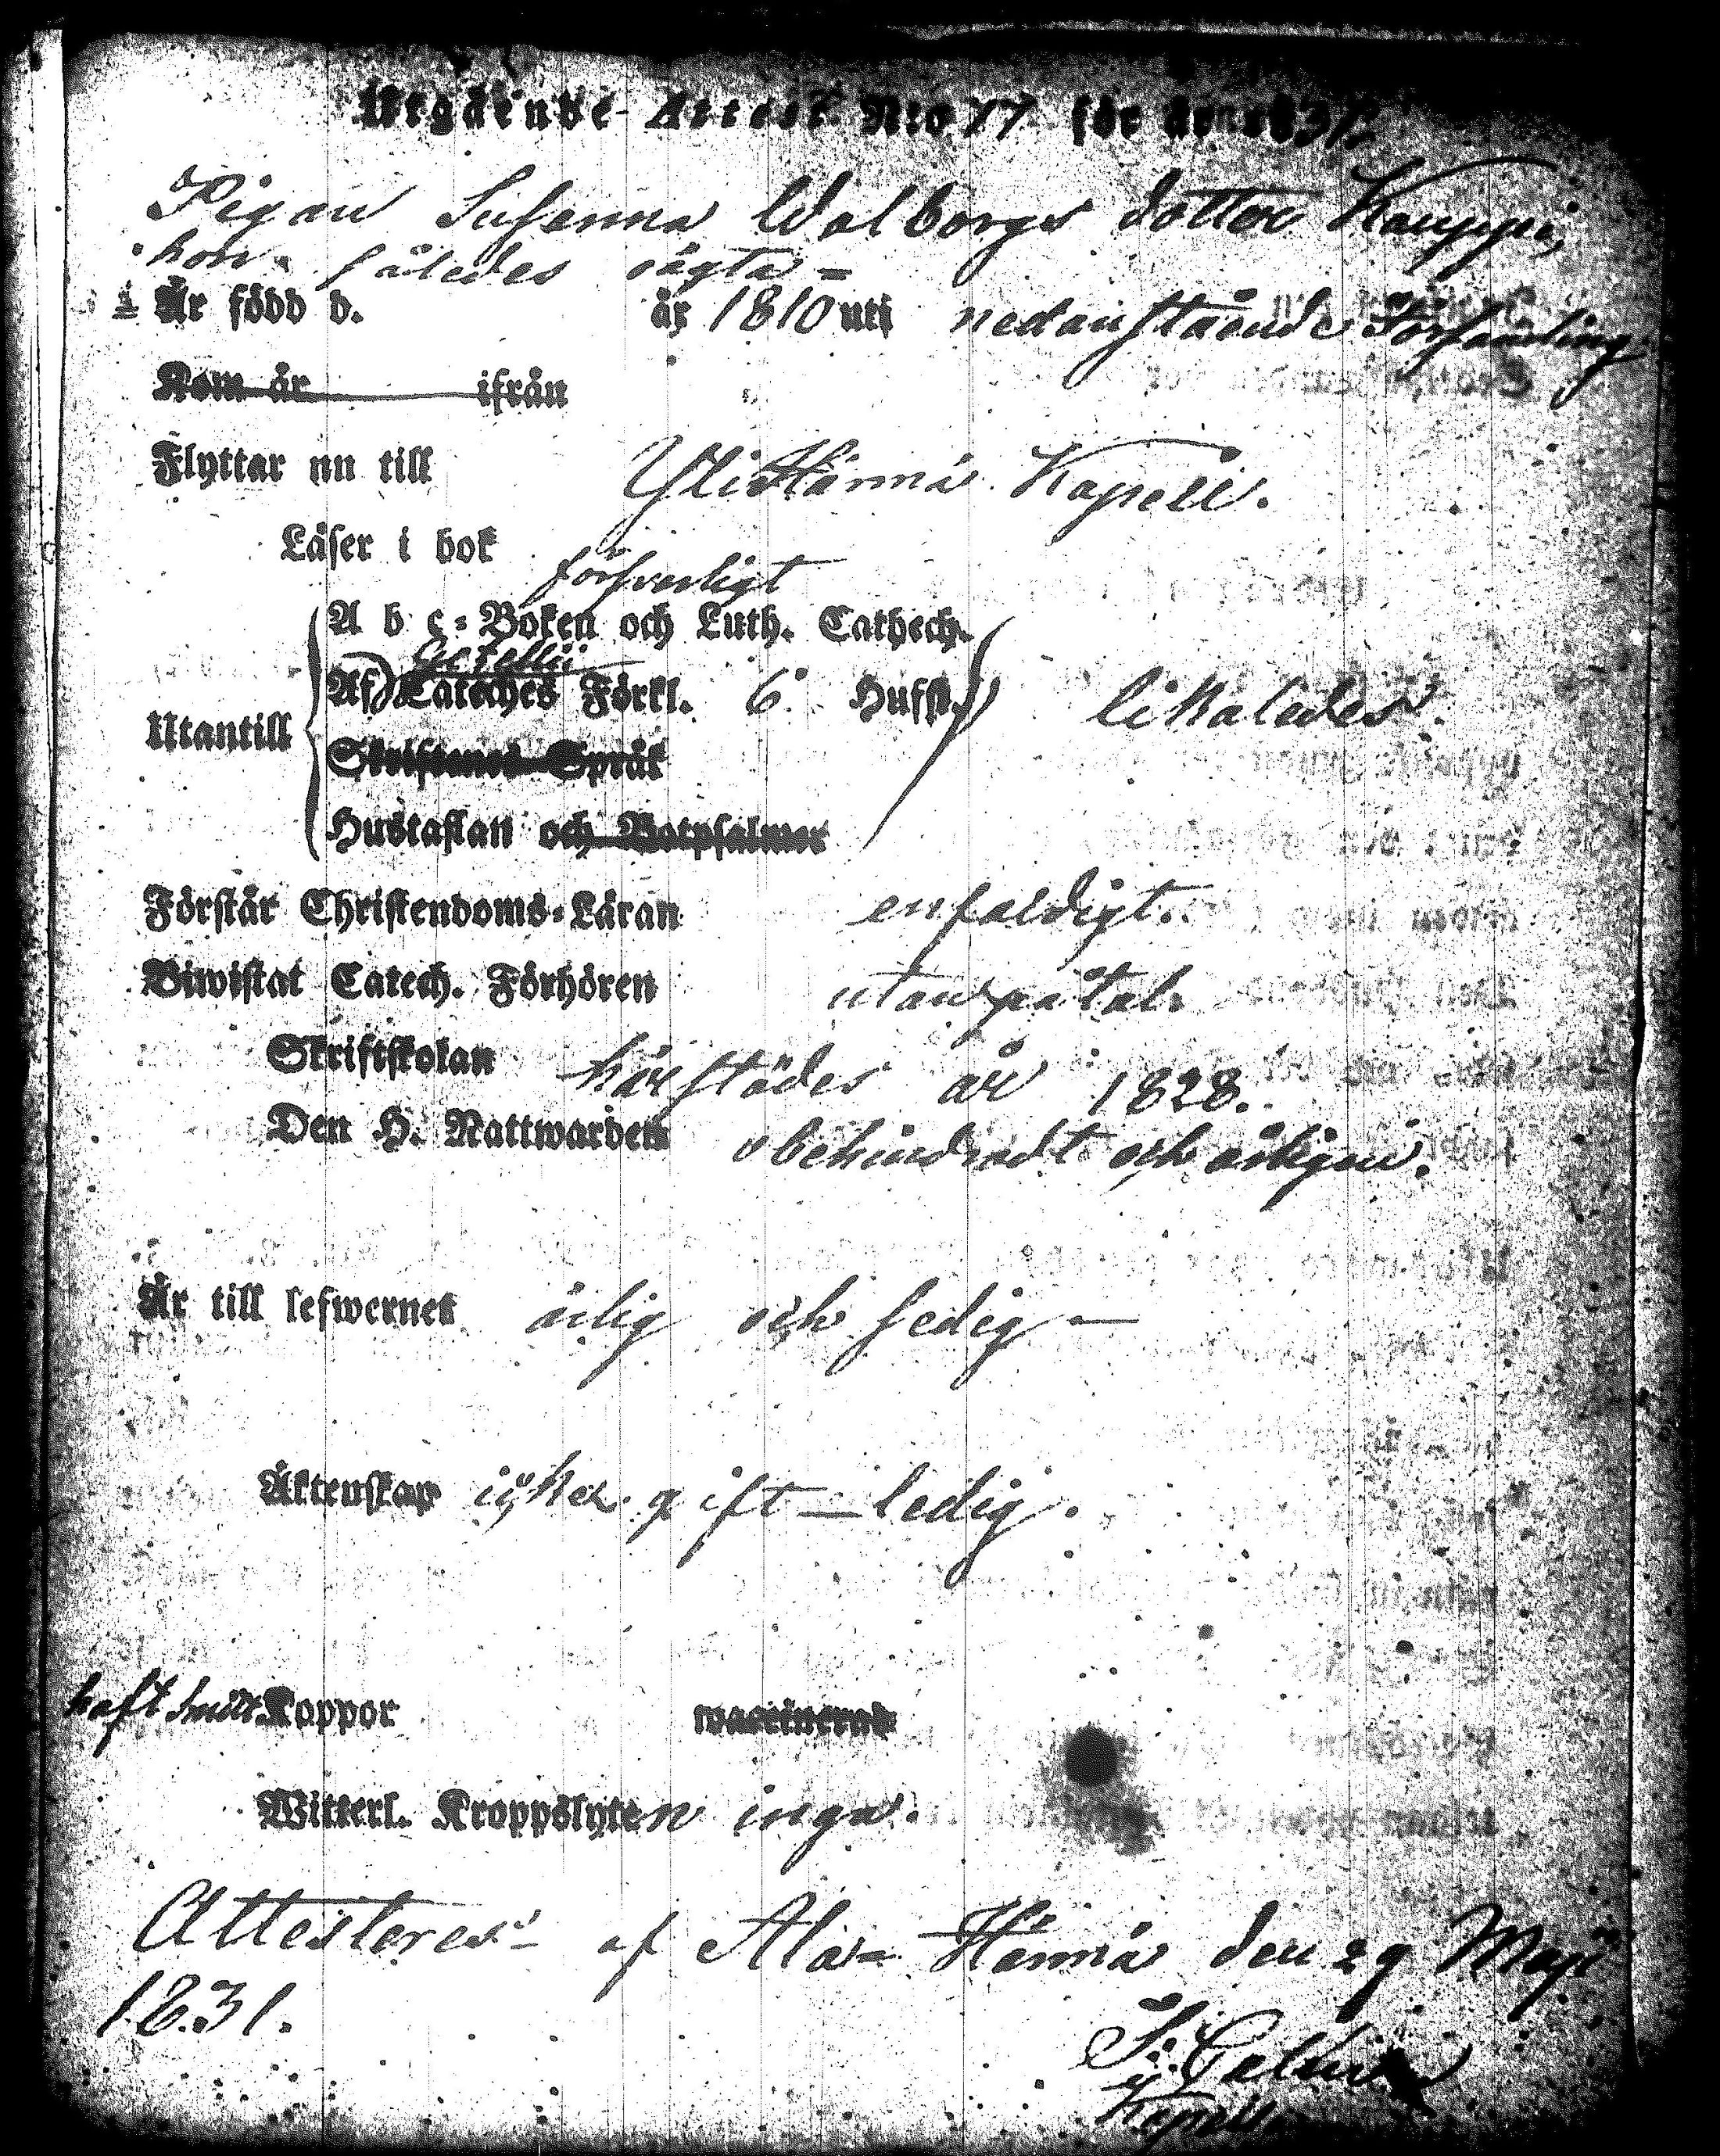 Utgående Attest N:o 77 för år 1831.
Pigan Susanna Walborgs dotter Kauppi,
hon således ägta =
Är född d. år 1810 uti nedanstående Församling
Kom år ifrån
Flyttar nu till Yli Härmä Kapell.
Läser i bok försvarligt
A b c = Boken och Luth. Cathech.
Gezellii
Af Cateches Förkl. 6 Hufst. likaledes.
Utantill
Skriftenes Språk
Hustaflan och Botpsalmer
Förstår Christendoms-Läran enfaldigt.
Biwistat Catech. Förhören utan påtal.
Skriftskolan härstädes år 1828.
Den H. Nattwarden obehindradt och årligen.
Är till lefwernet ärlig och sedig —
Äktenskap icke gift — ledig.
haft Koppor vaccinerad
Witterl. Kroppslyten inga.
Attesteras af Ala= Härmä den 29 Maji
1831.
Kapell.